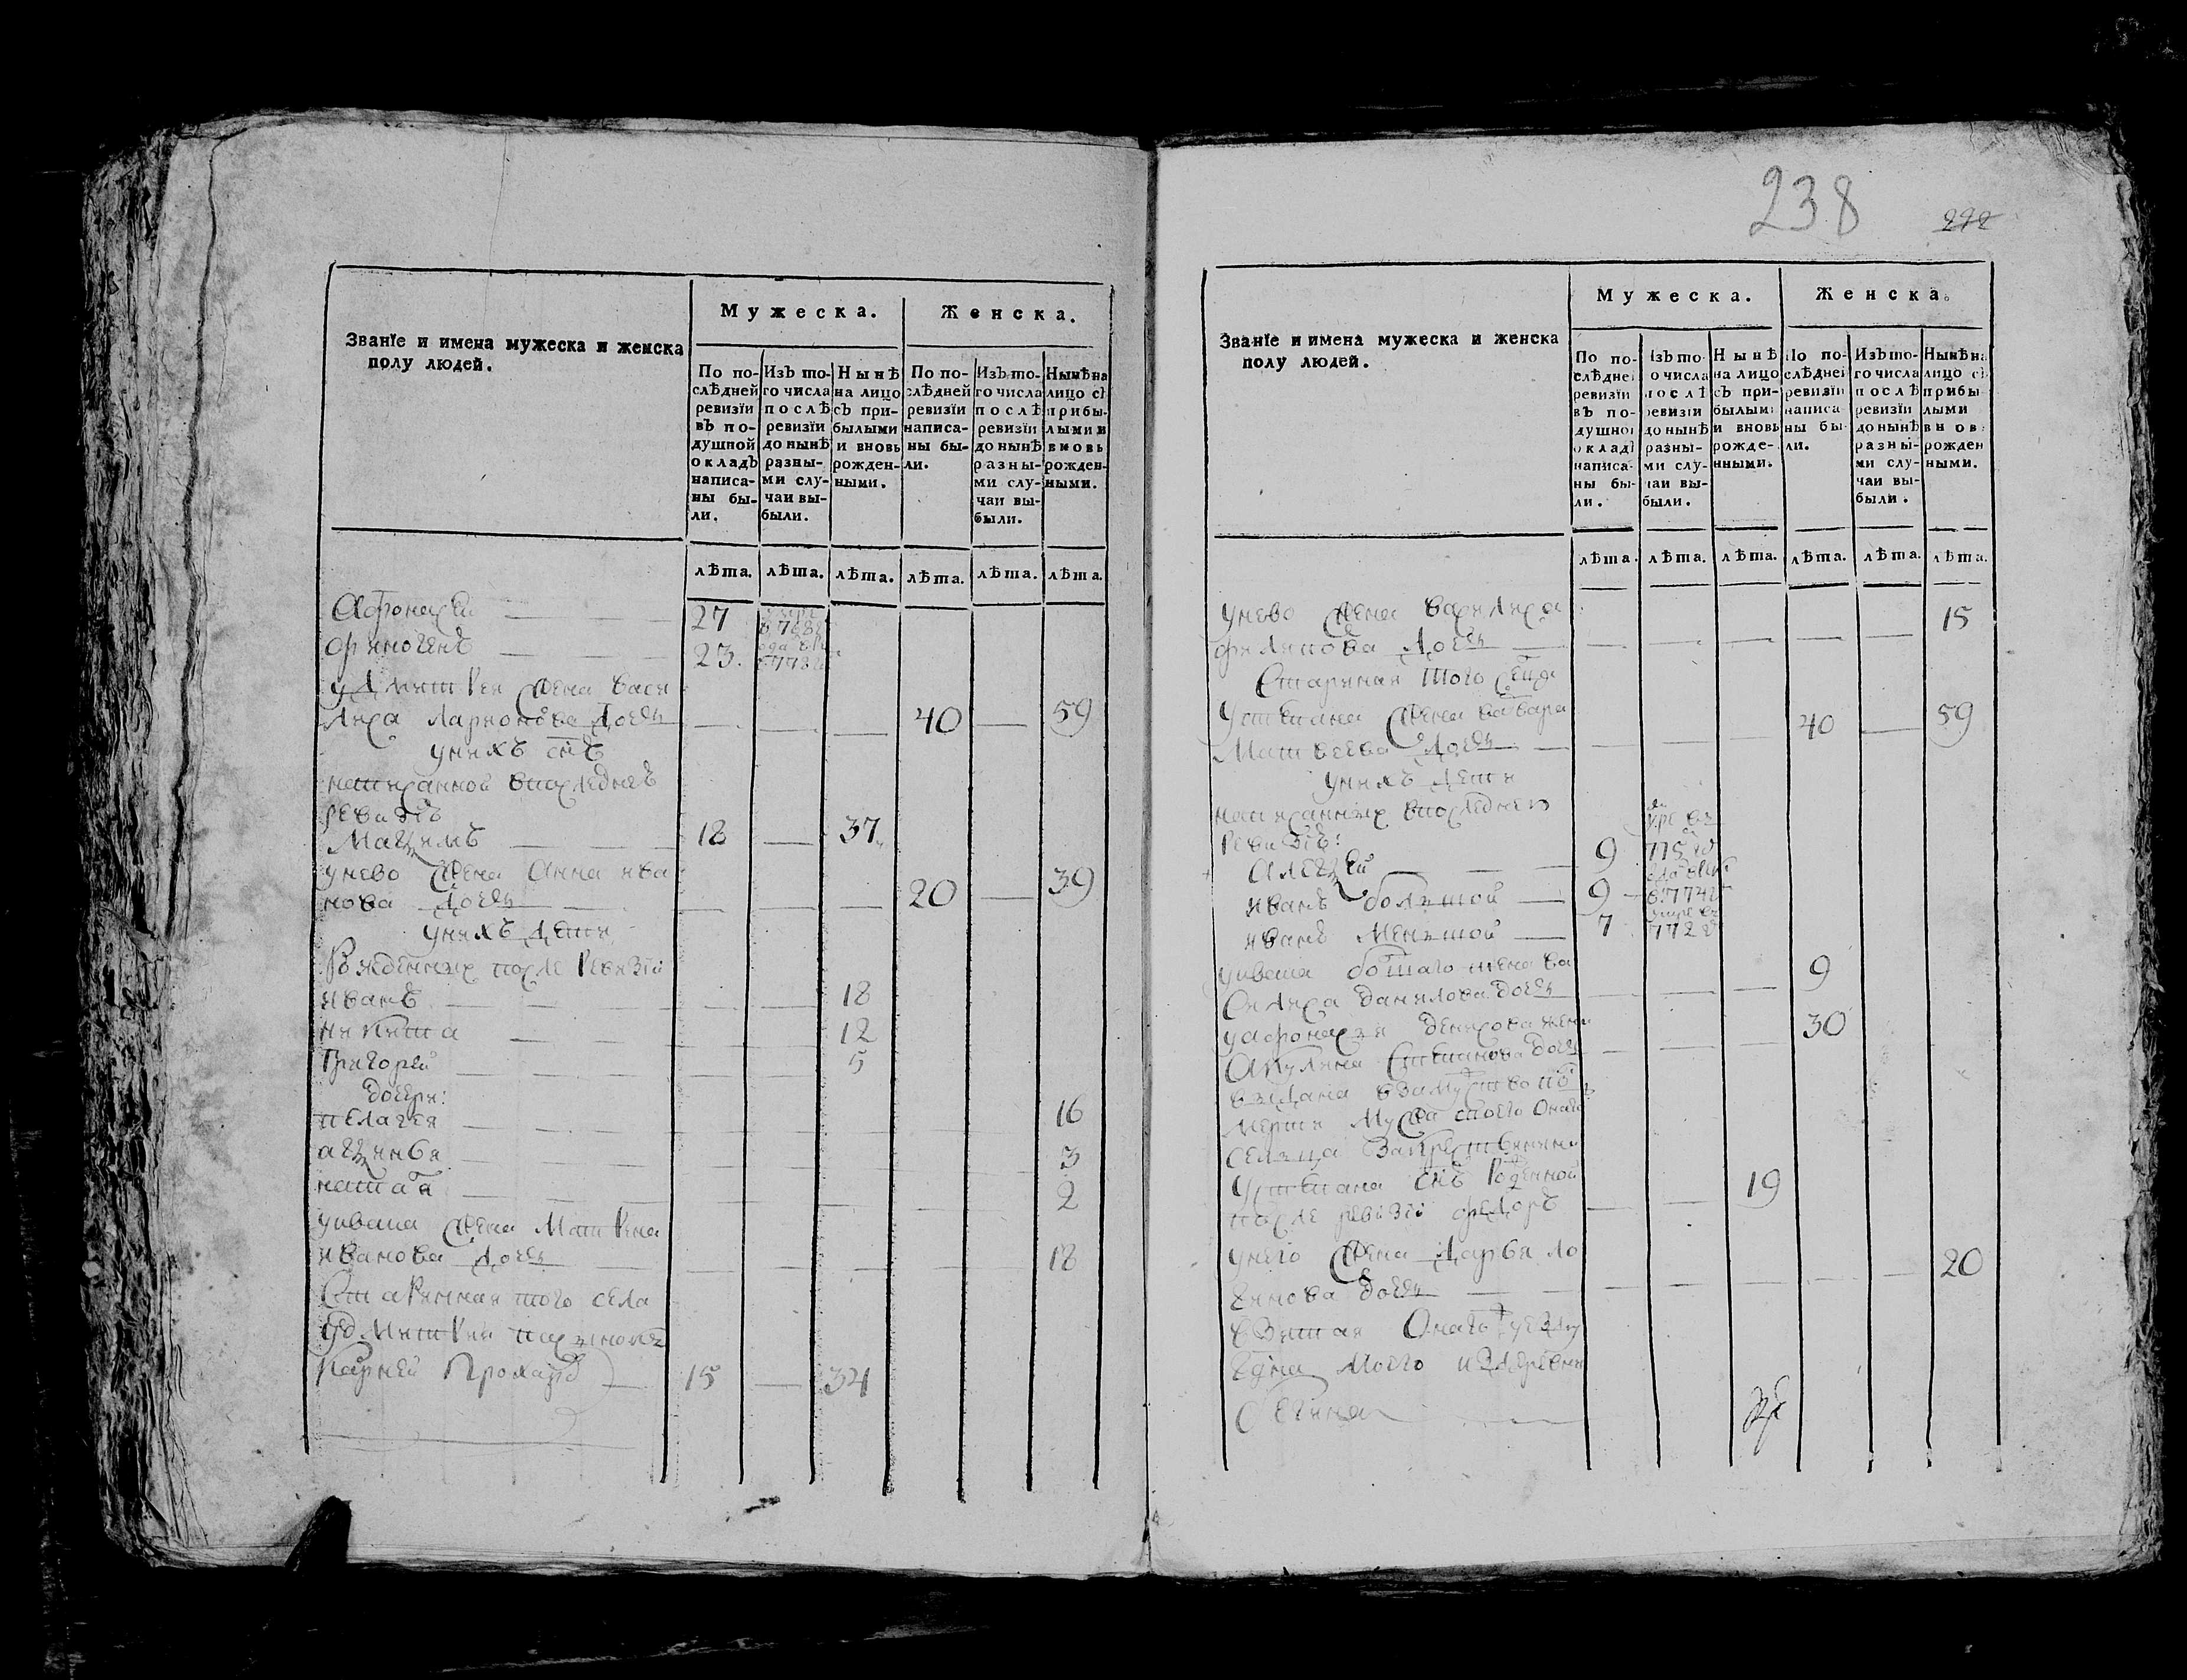 238
272
Званїе и имена мужеска и женска
полу людей.
Мужеска.
Женска.
По по-
слѣдней
ревизїи
въ по-
душной
окладъ
написа-
ны бы-
ли.
Изъ то-
го числа
послѣ
ревизїи
до нынѣ
разны-
ми слу-
чаи вы-
были.
Нынѣ
на лицо
съ при-
былыми
и вновь
рожден-
ными.
По по-
слѣдней
ревизїи
написа-
ны бы-
ли.
Изъ то-
го числа
послѣ
ревизїи
до нынѣ
разны-
ми слу-
чаи вы-
были.
Нынѣ на
лицо съ
прибы-
лыми и
вновь
рожден-
ными.
лѣта. лѣта. лѣта. лѣта. лѣта. лѣта.
Афонасеи 27
финогенъ 23.
удмитрея жена васи
лиса ларионова дочь 40 59
унихъ снъ
написанной впоследнеъ
ревизiѣ
Маѯимъ 18 37
унево жена Анна ива
нова дочь 20 39
унихъ дети
Рожденных после Ревизiи
иванъ 18
никита 12
Григореи 5
дочери:
пелагея 16
аѯинья 3
ната 2
уивана жена Матрена
иванова дочь 18
Старинная того села
удмитрея
15 34
Званїе и имена мужеска и женска
полу людей.
Мужеска.
Женска.
По по-
слѣдней
ревизїи
въ по-
душной
окладъ
написа-
ны бы-
ли.
Изъ то-
го числа
послѣ
ревизїи
до нынѣ
разны-
ми слу-
чаи вы-
были.
Нынѣ
на лицо
съ при-
былыми
и вновь
рожде-
нными.
По по-
слѣдней
ревизїи
написа-
ны бы-
ли.
Изъ то-
го числа
послѣ
ревизїи
до нынѣ
разны-
ми слу-
чаи вы-
были.
Нынѣ на
лицо съ
прибы-
лыми
вновь
рожден
ными.
лѣта. лѣта. лѣта. лѣта. лѣта. лѣта.
унево жена василиса 15
филипова дочь
Старинная того села
Устепана жена варвара 40 59
Матвеева дочь
унихъ дети
написанных впоследнеи
Ревизiѣ:
Алеѯей 9
иванъ большой 9
иванъ меньшой 7
уивана болшаго жена ва 9
Силиса данилова дочь
уафонасья денисова жена 30
Акулина Степанова дочь
выдана взамуство по
мерти мужа своего Онаго
селца
Устепана снъ Рожденной 19
после ревизiи федоръ
унего жена дарья ло 20
гинова дочь
взятая Онаго уезду
из деревни